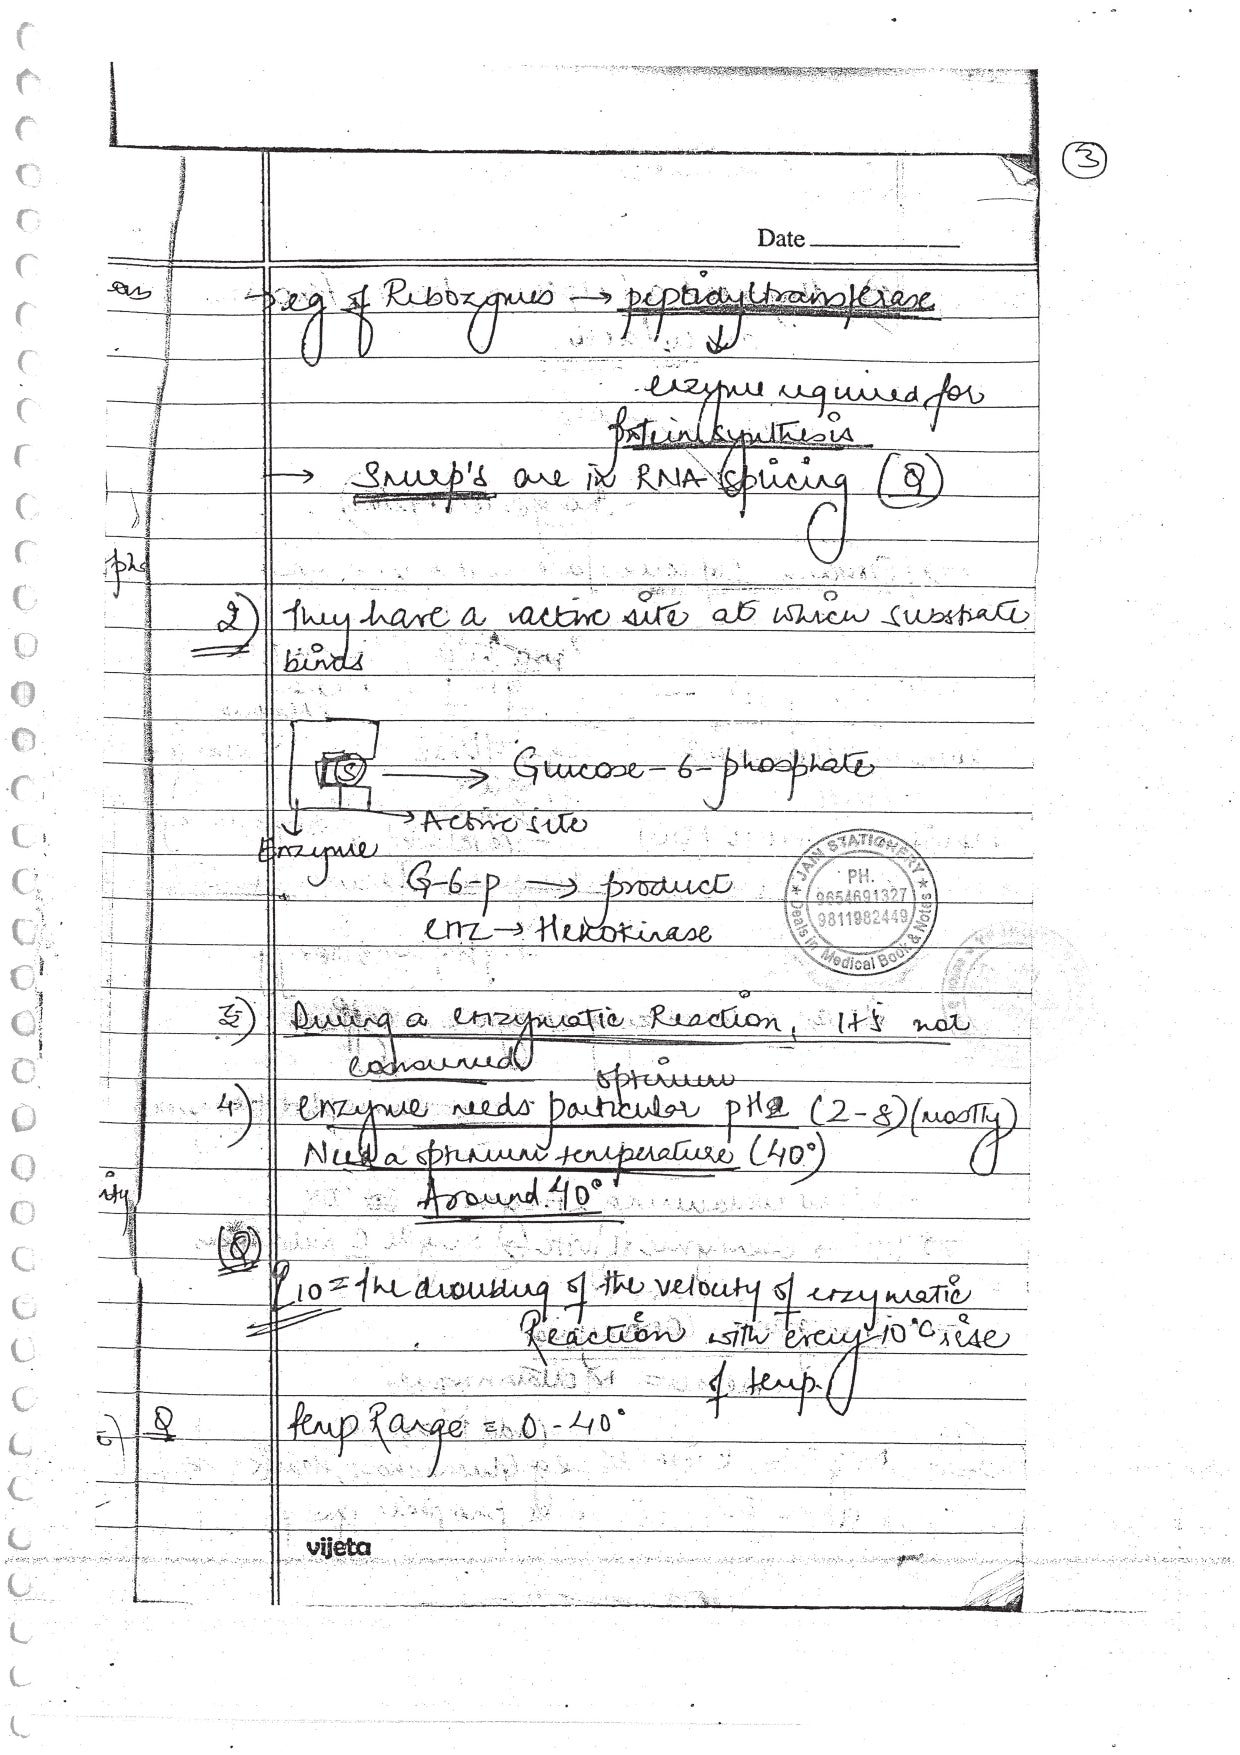 3
Date
ons
→ eg of Ribozymes → peptidyltransferase
↓
enzyme required for
protein synthesis
→ Snurp's are in RNA splicing (Q)
pho
2) They have a active site at which substrate
binds
S → Glucose-6-phosphate
→ Active site
Enzyme
G-6-p → product
enz → Hexokinase
JAIN STATIONERY
PH.
9654691327
9811982449
Deals in Medical Book & Notes
3) During a enzymatic Reaction, It's not
consumed
optimum
4) enzyme needs particular pH (2-8) (mostly)
Need a optimum temperature (40°)
Around 40°
ity
(Q)
Q10 = the doubling of the velocity of enzymatic
Reaction with every 10°C rise
of temp.
Q temp Range = 0 - 40°
vijeta